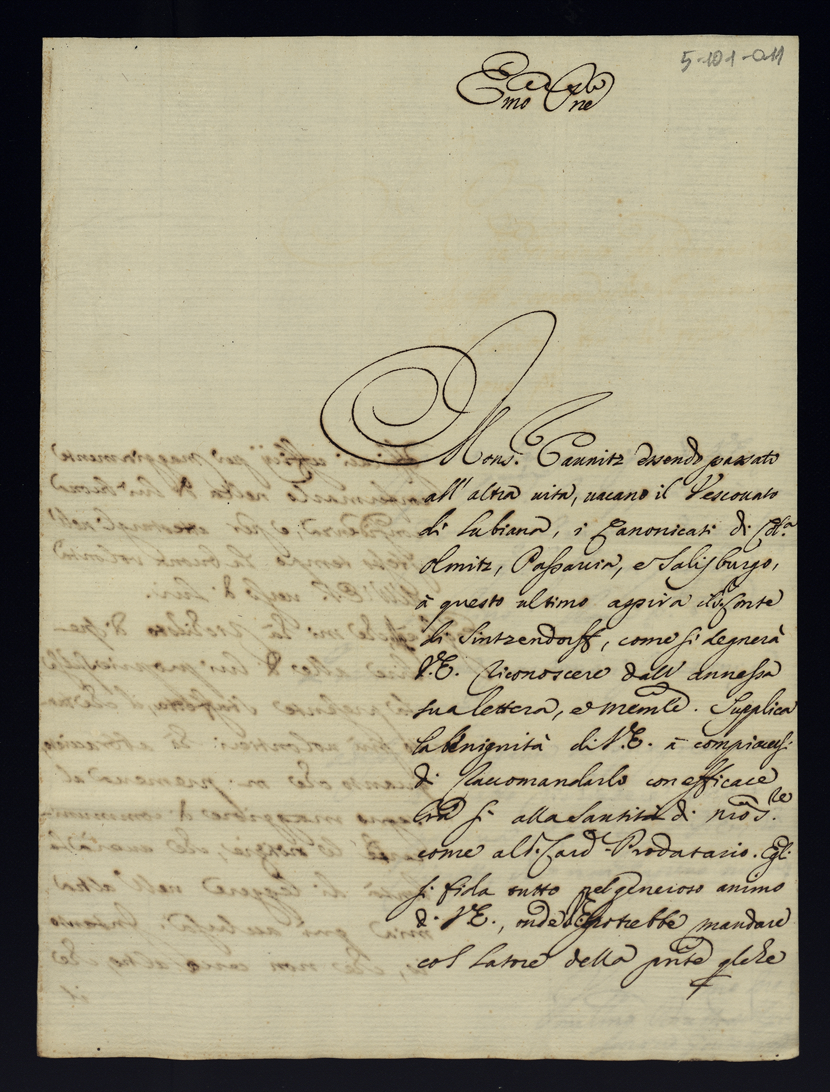 5-101-011
Emo
Mons. Caunitz essendo passato
all' altra uita, uacano il Vescouato
di Lubiana, i Canonicati di
olmitz, Passauia, e Salisburgo,
à questo ultimo aspira il Conte
di Sintzendorff, come si degnerà
V.E. riconoscere dall' annessa
sua lettera, e memle. Supplica
la benignità di V.E. à compiacersi
di raccomandarlo con efficace
si alla Santità di nro Sre
come al S. Card Prodatario. Egli
si fida tutto nel generoso animo
di V.E., onde potrebbe mandare
col latore della pnte qlche